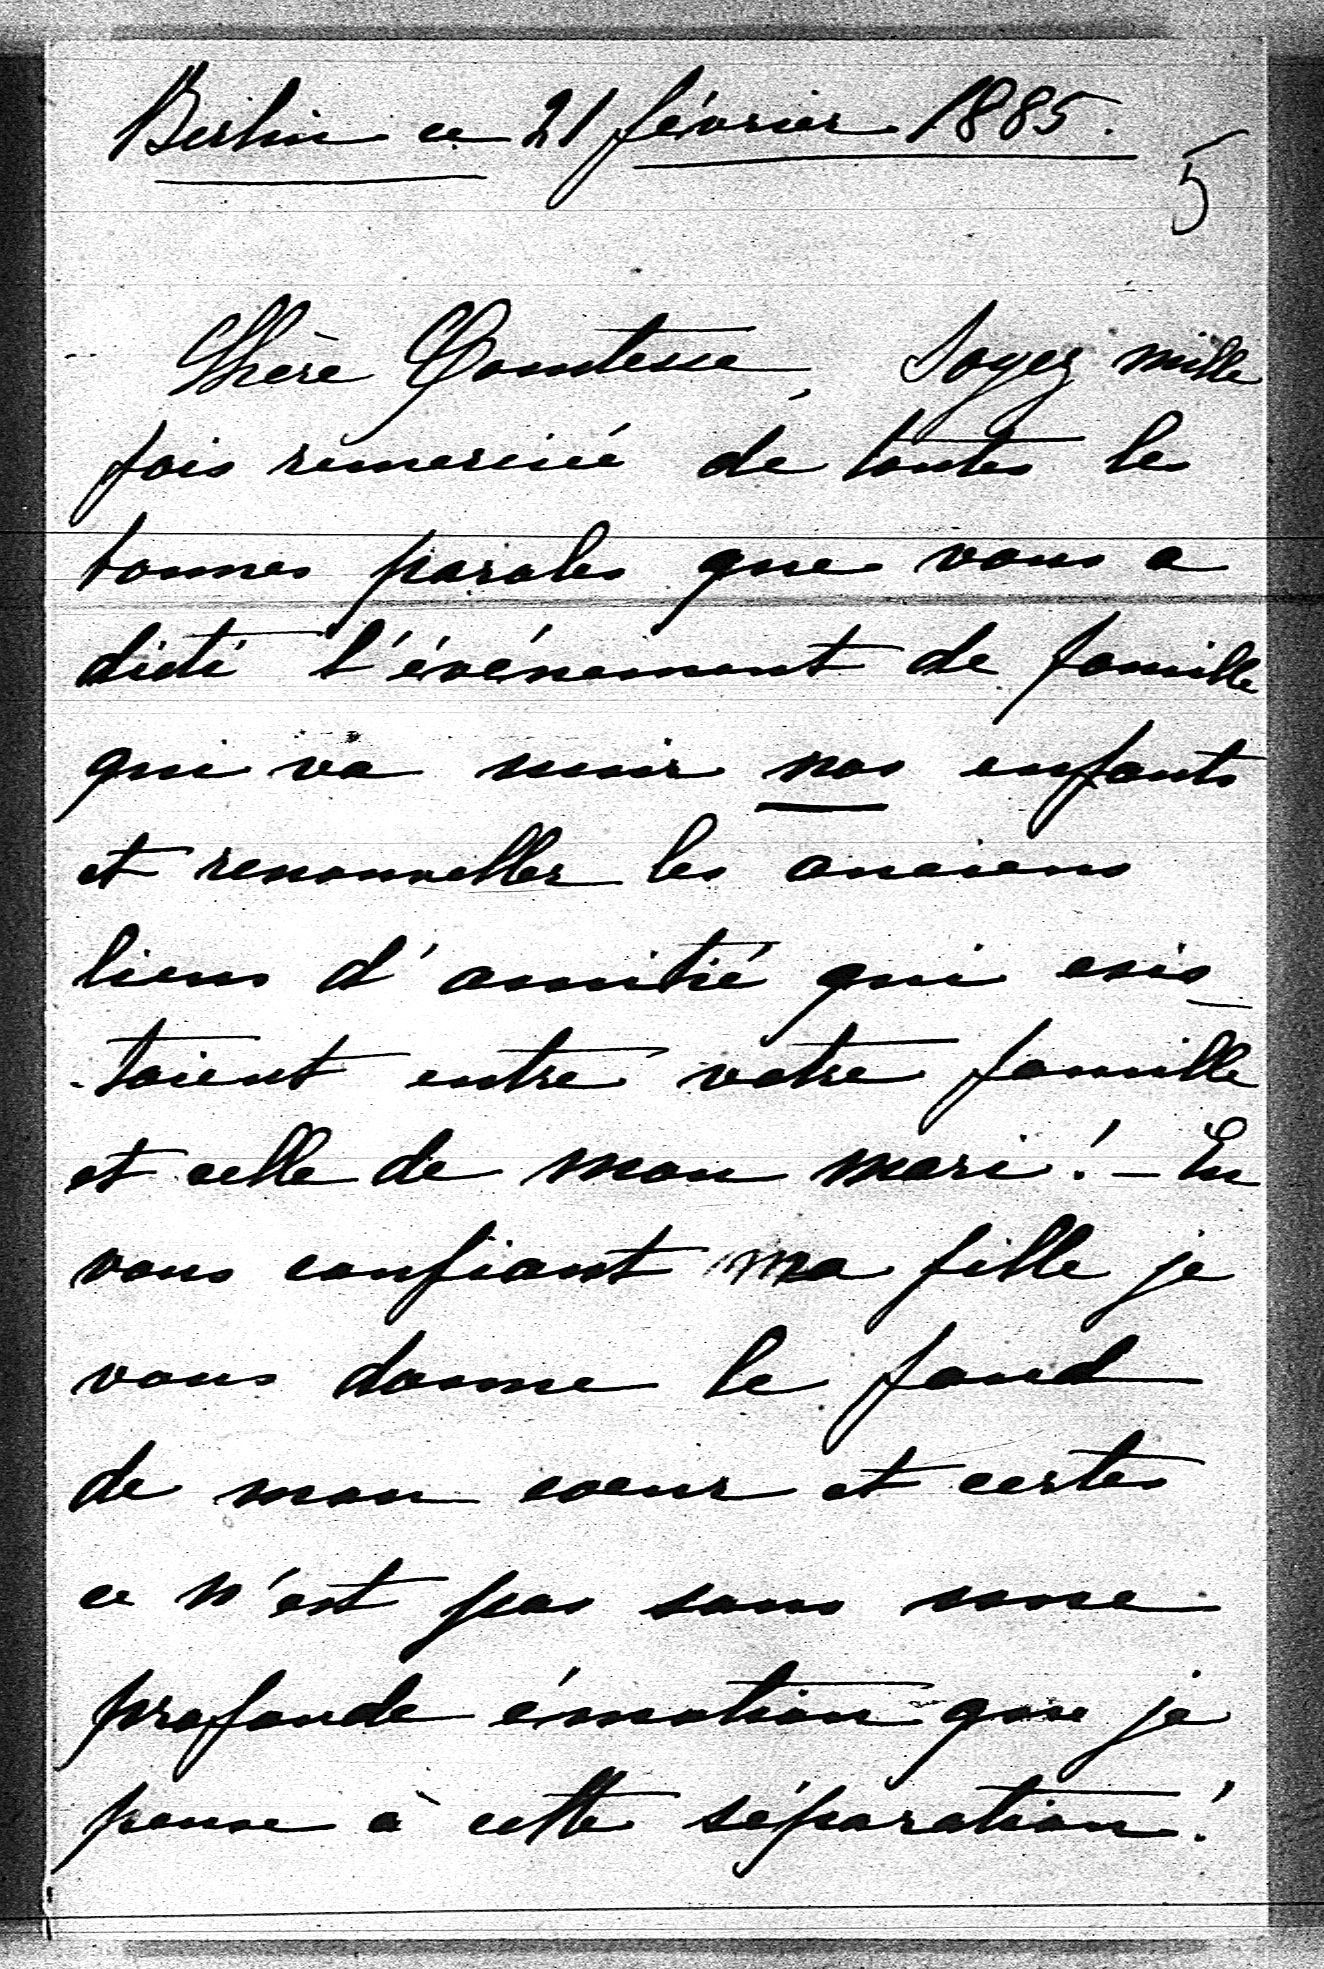 Berlin ce 21 février 1885.
5
Chère Comtesse, Soyez mille
fois remerciée de toutes les
bonnes paroles que vous a
dicté l'événement de famille
qui va unir nos enfants
et renouveller les anciens
liens d'amitié qui exis-
-taient entre votre famille
et celle de mon mari! - En
vous confiant ma fille je
vous donne le fond
de mon coeur et certes
ce n'est pas sans une
profonde émotion que je
pense à cette séparation!